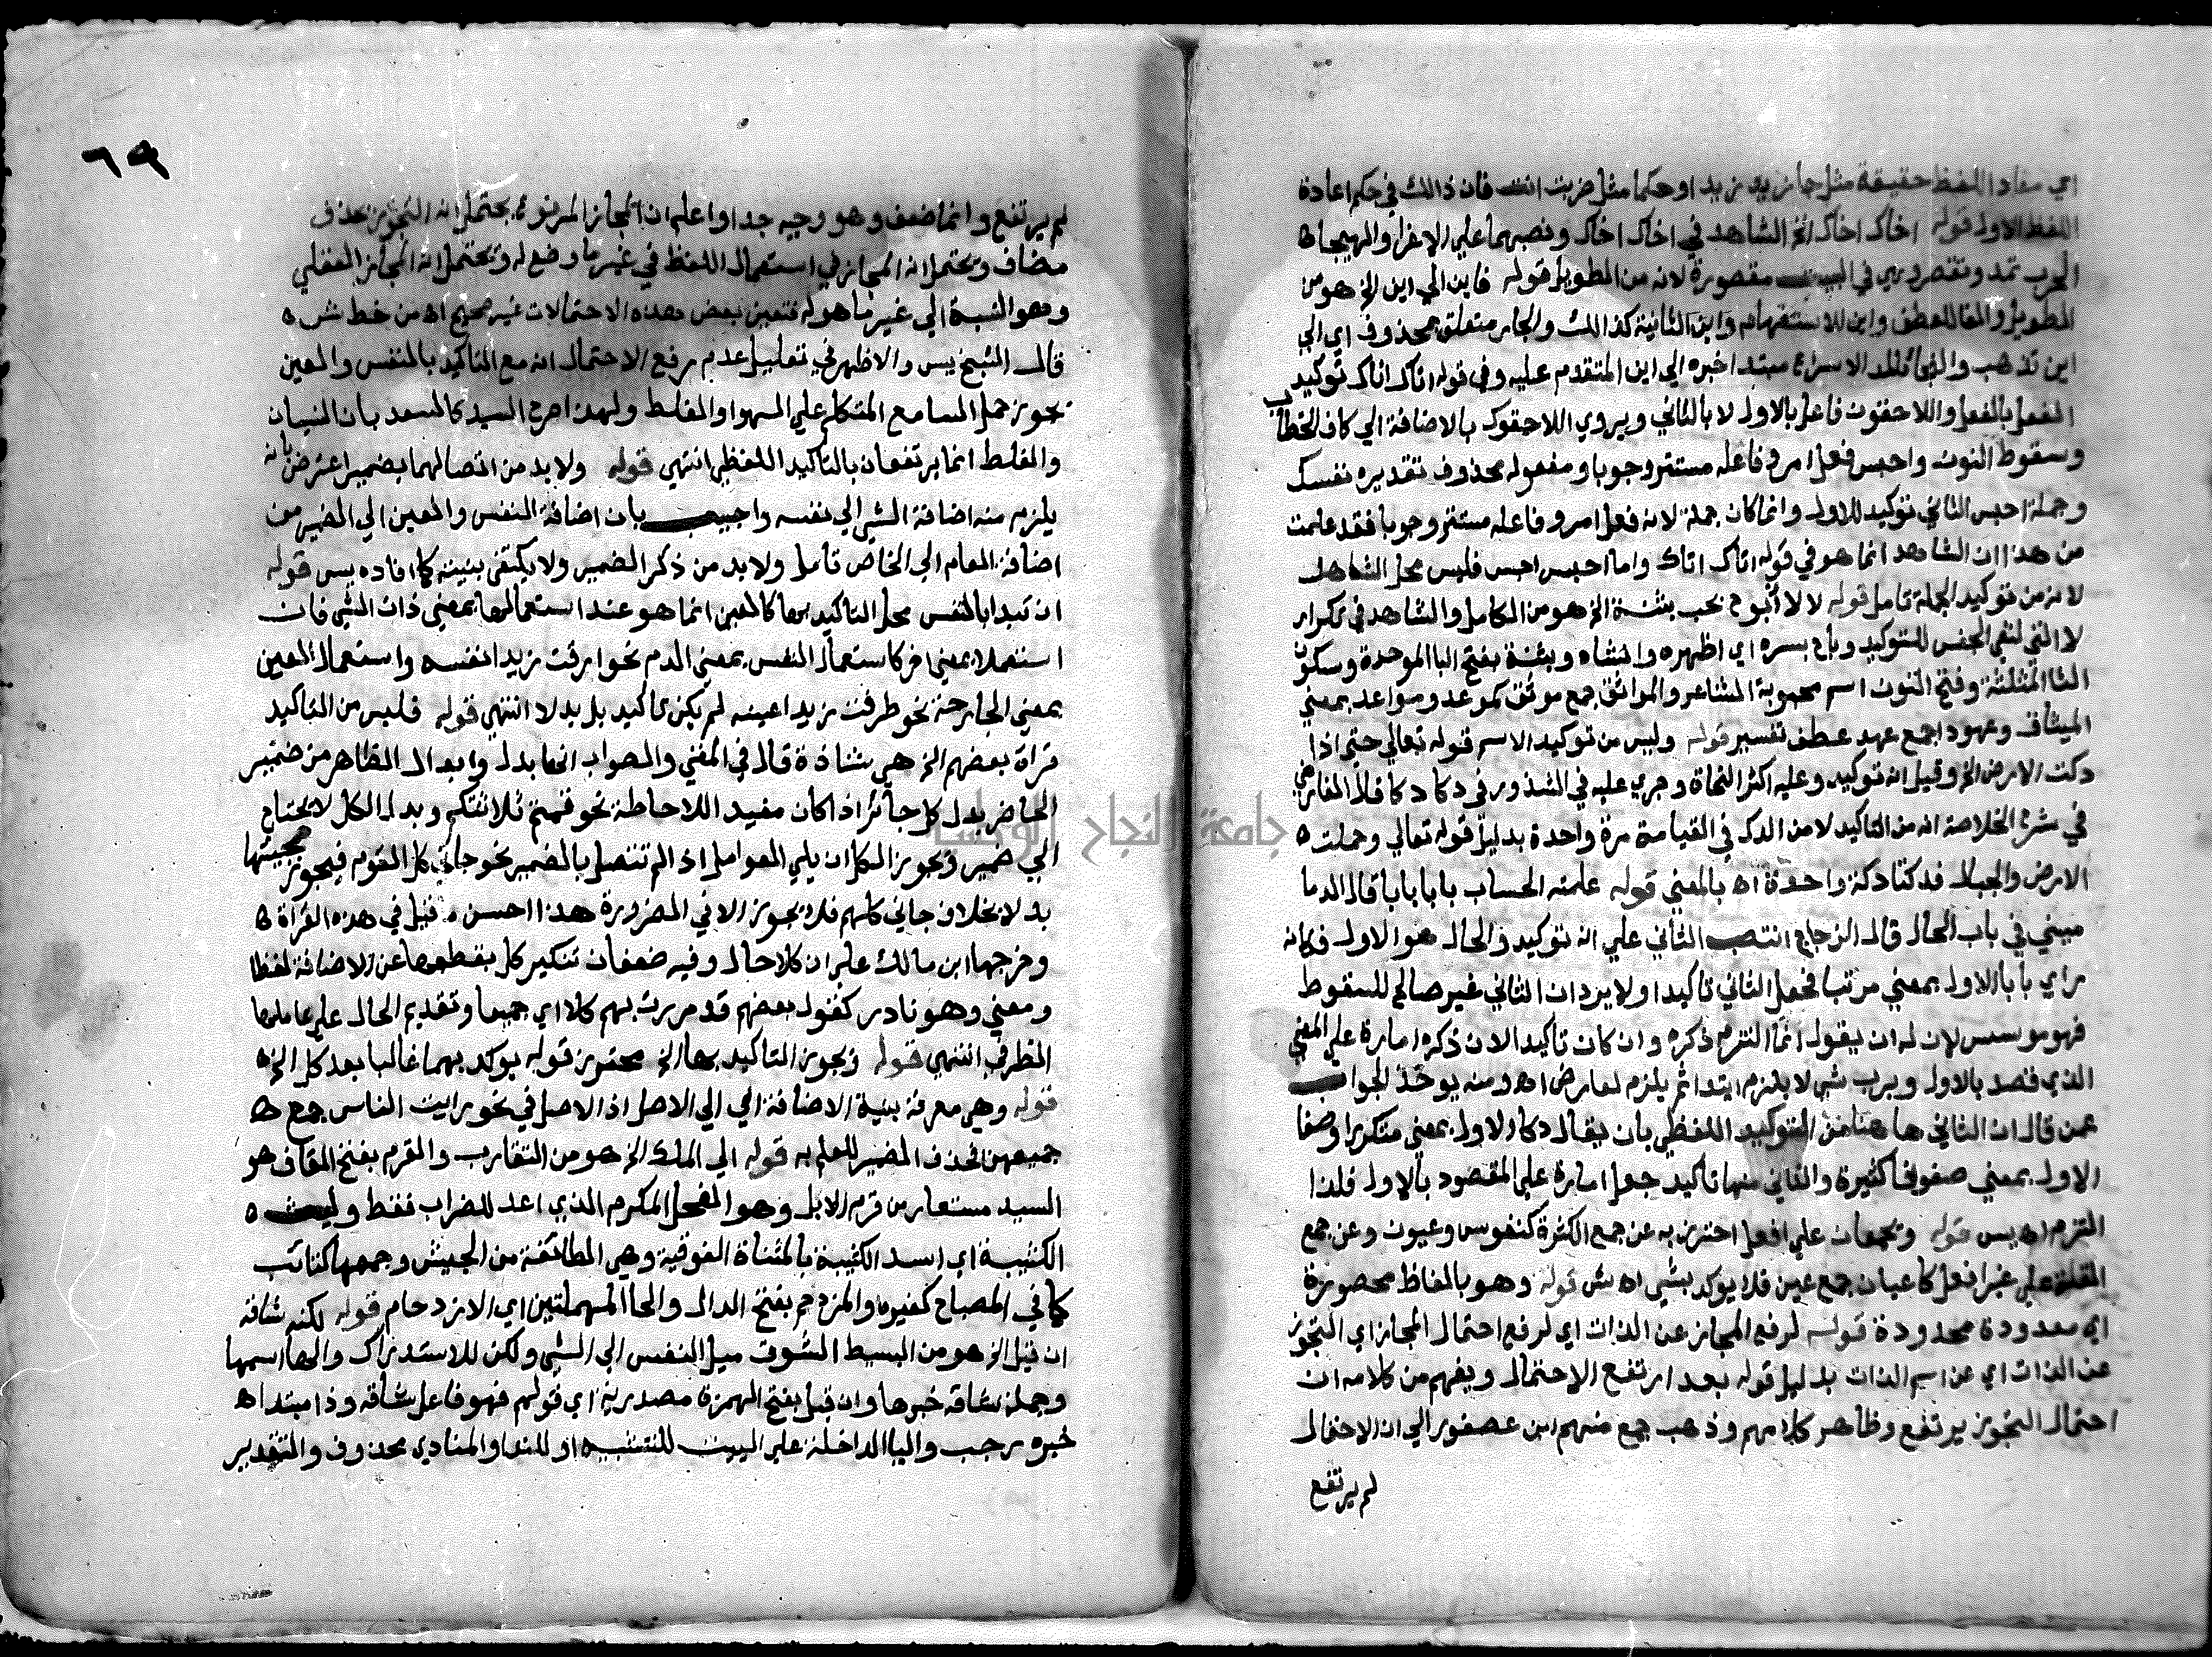 اي معاد اللفظ حقيقة مثل جا زيد زيد او حكما مثل ضربت انت فان ذالك في حكم اعادة
اللفظ الاول قوله اخاك اخاك الخ الشاهد في اخاك اخاك ونصبهما علي الاغرا والهيجا ه
الحرب تمد وتقصر وهي في البيت مقصورة لانه من الطويل قوله فاين الي اين الخ هو من
الطويل والفا للعطف واين للاستفهام واين الثانية كذالك والجار متعلق بمحذوف اي الي
اين تذهب والنجا بالمد الاسراع مبتدا خبره الي اين المتقدم عليه وفي قوله اتاك اتاك توكيد
الفعل بالفعل واللاحقون فاعل بالاول لا بالثاني ويروي اللاحقوك بالاضافة الي كاف الخطاب
وسقوط النون واحبس فعل امر وفاعله مستتر وجوبا ومفعوله محذوف تقديره نفسك
وجملة احبس الثاني توكيد للاول وانما كان جملة لانه فعل امر وفاعله مستتر وجوبا فقد علمت
من هذا ان الشاهد انما هو في قوله اتاك اتاك واما احبس احبس فليس محل الشاهد
لانه من توكيد الجملة تامل قوله لا لا ابوح بحب بثنة الخ هو من الكامل والشاهد في تكرار
لا التي لنفي الجنس للتوكيد وباح بسره اي اظهره وافشاه وبثنة بفتح البا الموحدة وسكون
الثا المثلثة وفتح النون اسم محبوبة الشاعر والمواثق جمع موثق كموعد ومواعد بمعني
الميثاق وعهودا جمع عهد عطف تفسير قوله وليس من توكيد الاسم قوله تعالي حتي اذا
دكت الارض الخ وقيل انه توكيد وعليه اكثر النحاة وجري عليه في الشذور في دكا دكا قال الفارضي
في شرح الخلاصة انه من التاكيد لا من الدك في القيامة مرة واحدة بدليل قوله تعالي وحملت ه
الارض والجبال فدكتا دكة واحدة اه بالمعني قوله علمته الحساب بابا بابا قال الدما
ميني في باب الحال قال الزجاج انتصب الثاني علي انه توكيد والحال هو الاول فكانه
راي بابا الاول بمعني مرتبا فجعل الثاني تاكيدا ولا يرد ان الثاني غير صالح للسقوط
فهو موسس لان له ان يقول انما التزم ذكره وان كان تاكيدا لان ذكره امارة علي المعني
الذي قصد بالاول ورب شي لا يلزم ابتدا ثم يلزم لعارض اه ومنه يوخذ الجواب
عمن قال ان الثاني ها هنا من التوكيد اللفظي بان يقال دكا الاول بمعني متكررا وصفا
الاول بمعني صفوفا كثيرة والثاني منها تاكيد جعل امارة علي المقصود بالاول فلذا
التزم اه يس قوله وتجمعان علي افعل احترز به عن جمع الكثرة كنفوس وعيون وعن جمع
القلة علي غير افعل كاعيان جمع عين فلا يوكد بشي اه ش قوله وهو بالفاظ محصورة
اي معدودة محدودة قوله لرفع المجاز عن الذات اي لرفع احتمال المجاز اي التجوز
عن الذات اي عن اسم الذات بدليل قوله بعد ارتفع الاحتمال ويفهم من كلامه ان
احتمال التجوز يرتفع وظاهر كلامهم وذهب جمع منهم ابن عصفور الي ان الاحتمال
لم يرتفع
٦٩
لم يرتفع وانما ضعف وهو وجيه جدا واعلم ان المجاز المرفوع يحتمل انه التجوز بحذف
مضاف ويحتمل انه المجاز في استعمال اللفظ في غير ما وضع له ويحتمل انه المجاز العقلي
وهو النسبة الي غير ما هو له فتعين بعض هذه الاحتمالات غير صحيح اه من خط ش ه
قال الشيخ يس والاظهر في تعليل عدم رفع الاحتمال انه مع التاكيد بالنفس والعين
يجوز حمل السامع المتكلم علي السهو او الغلط ولهذا صرح السيد كالسعد بان النسيان
والغلط انما يرتفعان بالتاكيد اللفظي انتهي قوله ولا بد من اتصالهما بضمير اعترض بانه
يلزم منه اضافة الشي الي نفسه واجيب بان اضافة النفس والعين الي الضمير من
اضافة العام الي الخاص تامل ولا بد من ذكر الضمير ولا يكتفي بنيته كما افاده يس قوله
ان تبدا بالنفس محل التاكيد بها كالعين انما هو عند استعمالها بمعني ذات الشي فان
استعملا بمعني اخر كاستعمال النفس بمعني الدم نحو ارقت زيدا نفسه واستعمال العين
بمعني الجارحة نحو طرفت زيدا عينه لم يكن تاكيد بل بدلا انتهي قوله فليس من التاكيد
قراة بعضهم الخ هي شاذة قال في المغني والصواب انها بدل وابدال الظاهر من ضمير
الحاضر بدل كل جائز اذا كان مفيد اللاحاطة نحو قمتم ثلاثتكم وبدل الكل لا يحتاج
الي ضمير ويجوز لكل ان يلي العوامل اذ الم تتصل بالضمير نحو جاني كل القوم فيجوز مجيئها
بدلا بخلاف جاني كلهم فلا يجوز الا في الضرورة هذا احسن ما قيل في هذه القراة ه
وخرجها ابن مالك علي ان كلا حال وفيه ضعفان تنكير كل بقطعها عن الاضافة لفظا
ومعني وهو نادر كقول بعضهم قد مررت بهم كلا اي جميعا وتقديم الحال علي عاملها
الظرفي انتهي قوله ويجوز التاكيد بها الخ محترز قوله يوكد بهما غالبا بعد كل الخ ه
قوله وهي معرفة بنية الاضافة الي الاصل اذ الاصل في نحو رايت الناس جمع ه
جميعهن فحذف الضمير للعلم به قوله الي الملك الخ هو من التقارب والقرم بفتح القاف هو
السيد مستعار من قرم الابل وهو الفحل المكرم الذي اعد للضراب فقط وليث ه
الكتيبة اي اسد الكتيبة بالمثناة الفوقية وهي الطائفة من الجيش وجمعها كتائب
كما في المصباح كغيره والمزدحم بفتح الدال والحا المهملتين اي الازدحام قوله لكنه شاقه
ان قيل الخ هو من البسيط الشوق ميل النفس الي الشي ولكن للاستدراك والها اسمها
وجملة شاقه خبرها وان قيل بفتح الهمزة مصدرية اي قولهم فهو فاعل شاقه وذا مبتدا ه
خبره رجب واليا الداخلة علي اليت للتنبيه او للندا والمنادي محذوف والتقدير